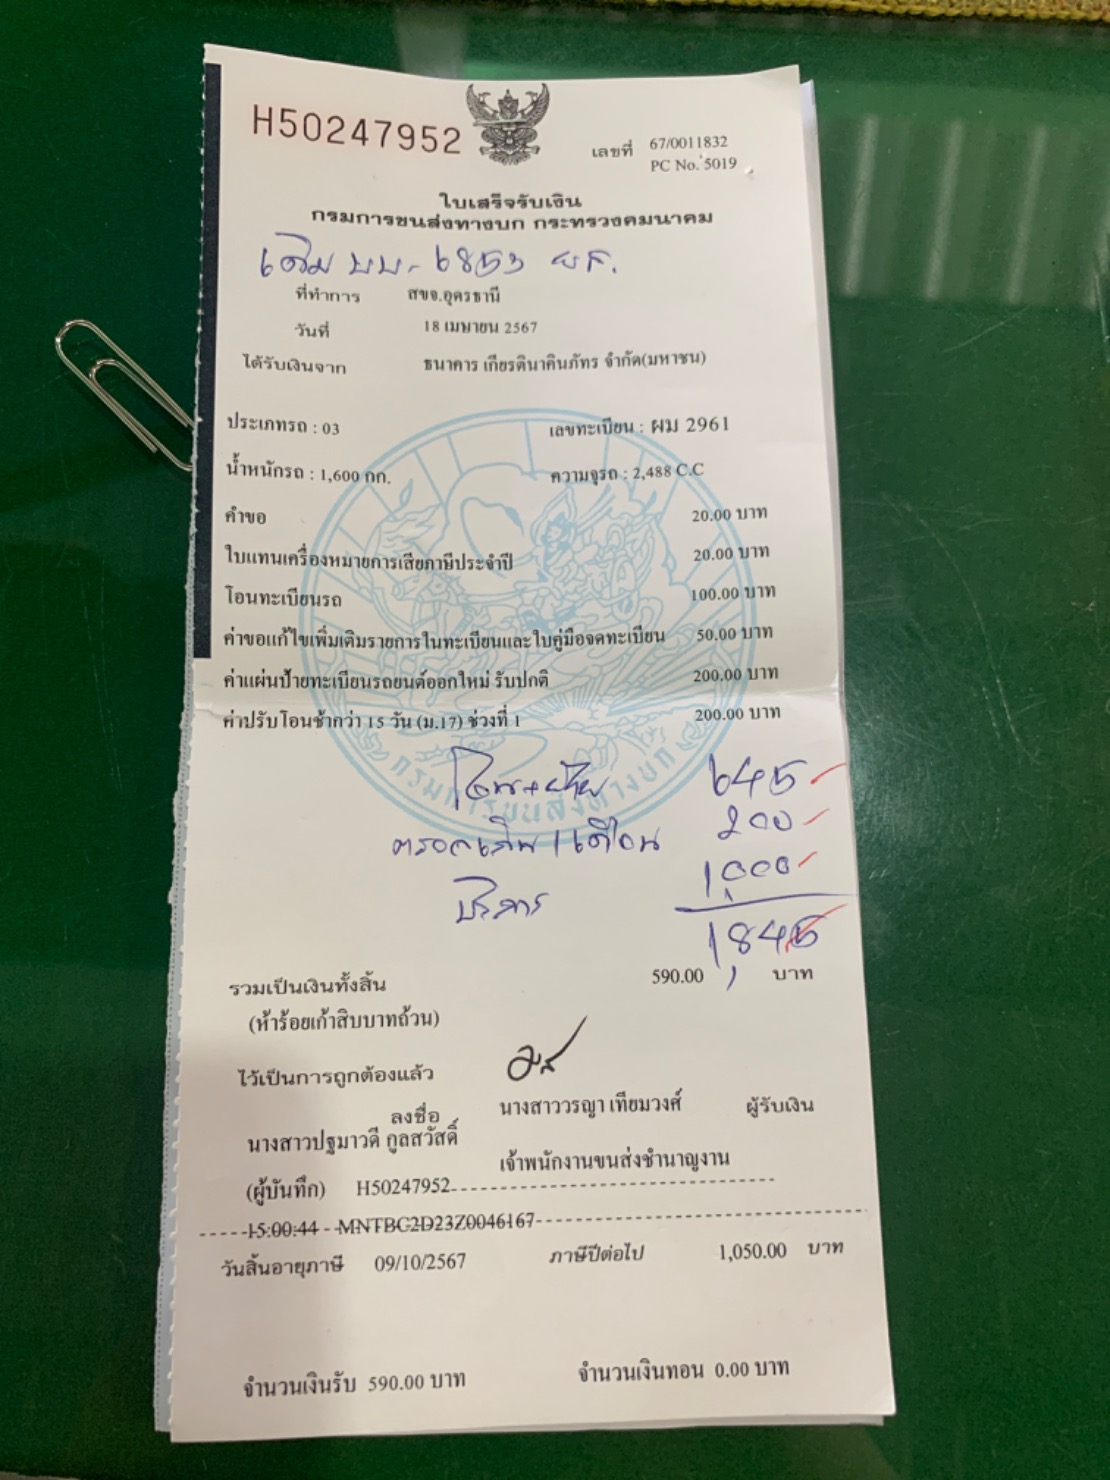 H50247952
เลขที่ 67/0011832
PC No. 5019
ใบเสร็จรับเงิน
กรมการขนส่งทางบก กระทรวงคมนาคม
เดิม บบ-6853
ที่ทำการ สขจ.อุดรธานี
วันที่ 18 เมษายน 2567
ได้รับเงินจาก ธนาคาร เกียรตินาคินภัทร จำกัด(มหาชน)
ประเภทรถ : 03 เลขทะเบียน : ผม 2961
น้ำหนักรถ : 1,600 กก. ความจุรถ : 2,488 C.C
คำขอ 20.00 บาท
ใบแทนเครื่องหมายการเสียภาษีประจำปี 20.00 บาท
โอนทะเบียนรถ 100.00 บาท
ค่าขอแก้ไขเพิ่มเติมรายการในทะเบียนและใบคู่มือจดทะเบียน 50.00 บาท
ค่าแผ่นป้ายทะเบียนรถยนต์ออกใหม่ รับปกติ 200.00 บาท
ค่าปรับโอนช้ากว่า 15 วัน (ม.17) ช่วงที่ 1 200.00 บาท
กรมการขนส่งทางบก
โอน+ย้าย 645
200
บริการ 1,000
1,845
รวมเป็นเงินทั้งสิ้น 590.00 บาท
(ห้าร้อยเก้าสิบบาทถ้วน)
ไว้เป็นการถูกต้องแล้ว
ลงชื่อ นางสาววรญา เทียมวงศ์ ผู้รับเงิน
นางสาวปฐมาวดี กูลสวัสดิ์
เจ้าพนักงานขนส่งชำนาญงาน
(ผู้บันทึก) H50247952
15:00:44 MNTBC2D23Z0046167
วันสิ้นอายุภาษี 09/10/2567 ภาษีปีต่อไป 1,050.00 บาท
จำนวนเงินรับ 590.00 บาท จำนวนเงินทอน 0.00 บาท